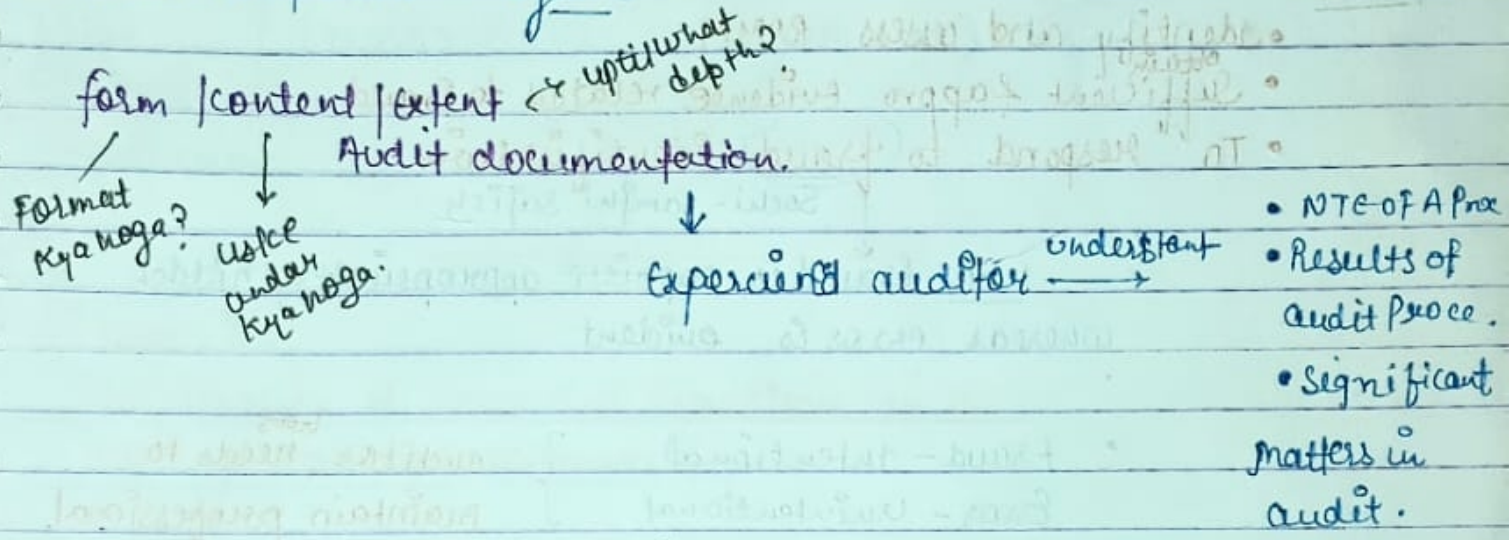 uptil what
depth?
form / content / Extent
Audit documentation.
Format
kya hoga?
uske
andar
kya hoga.
Experciend auditor
understant
• NTE OF A Proc
• Results of
audit Proce.
• Significant
matters in
audit.